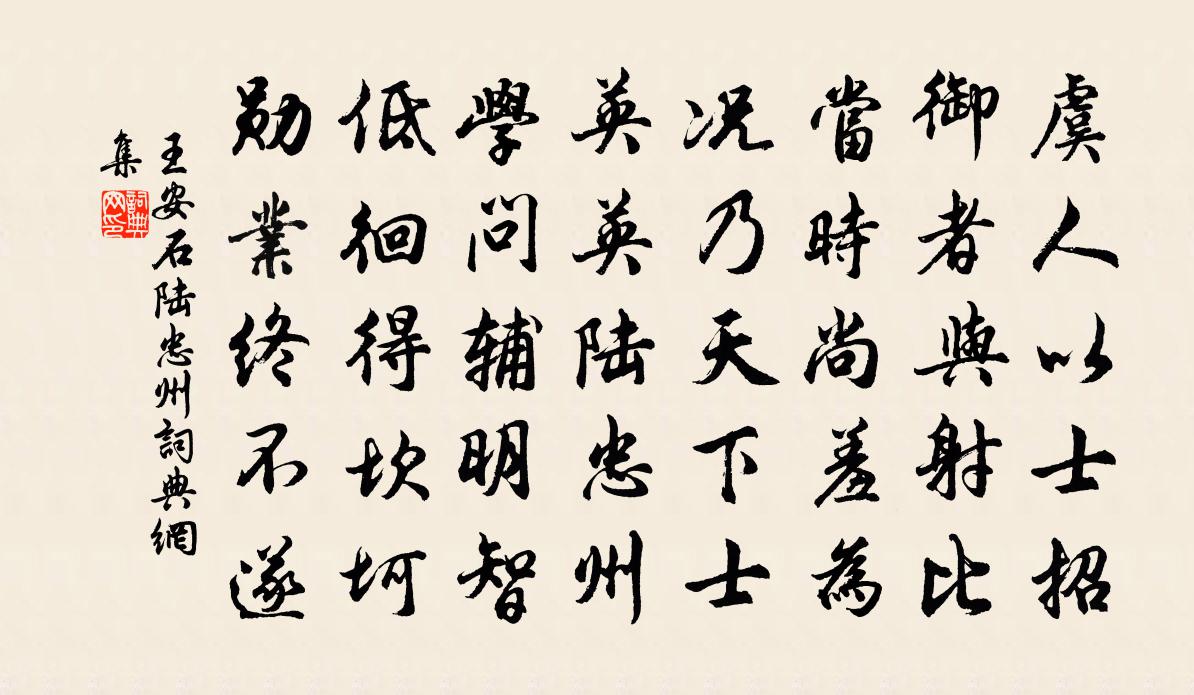 虞人以士招
御者與射比
當時尚羞為
况乃天下士
英英陸忠州
學問辅明智
低徊得坎坷
勛業终不遂
王安石陸忠州詞典網
集
詞典
网印